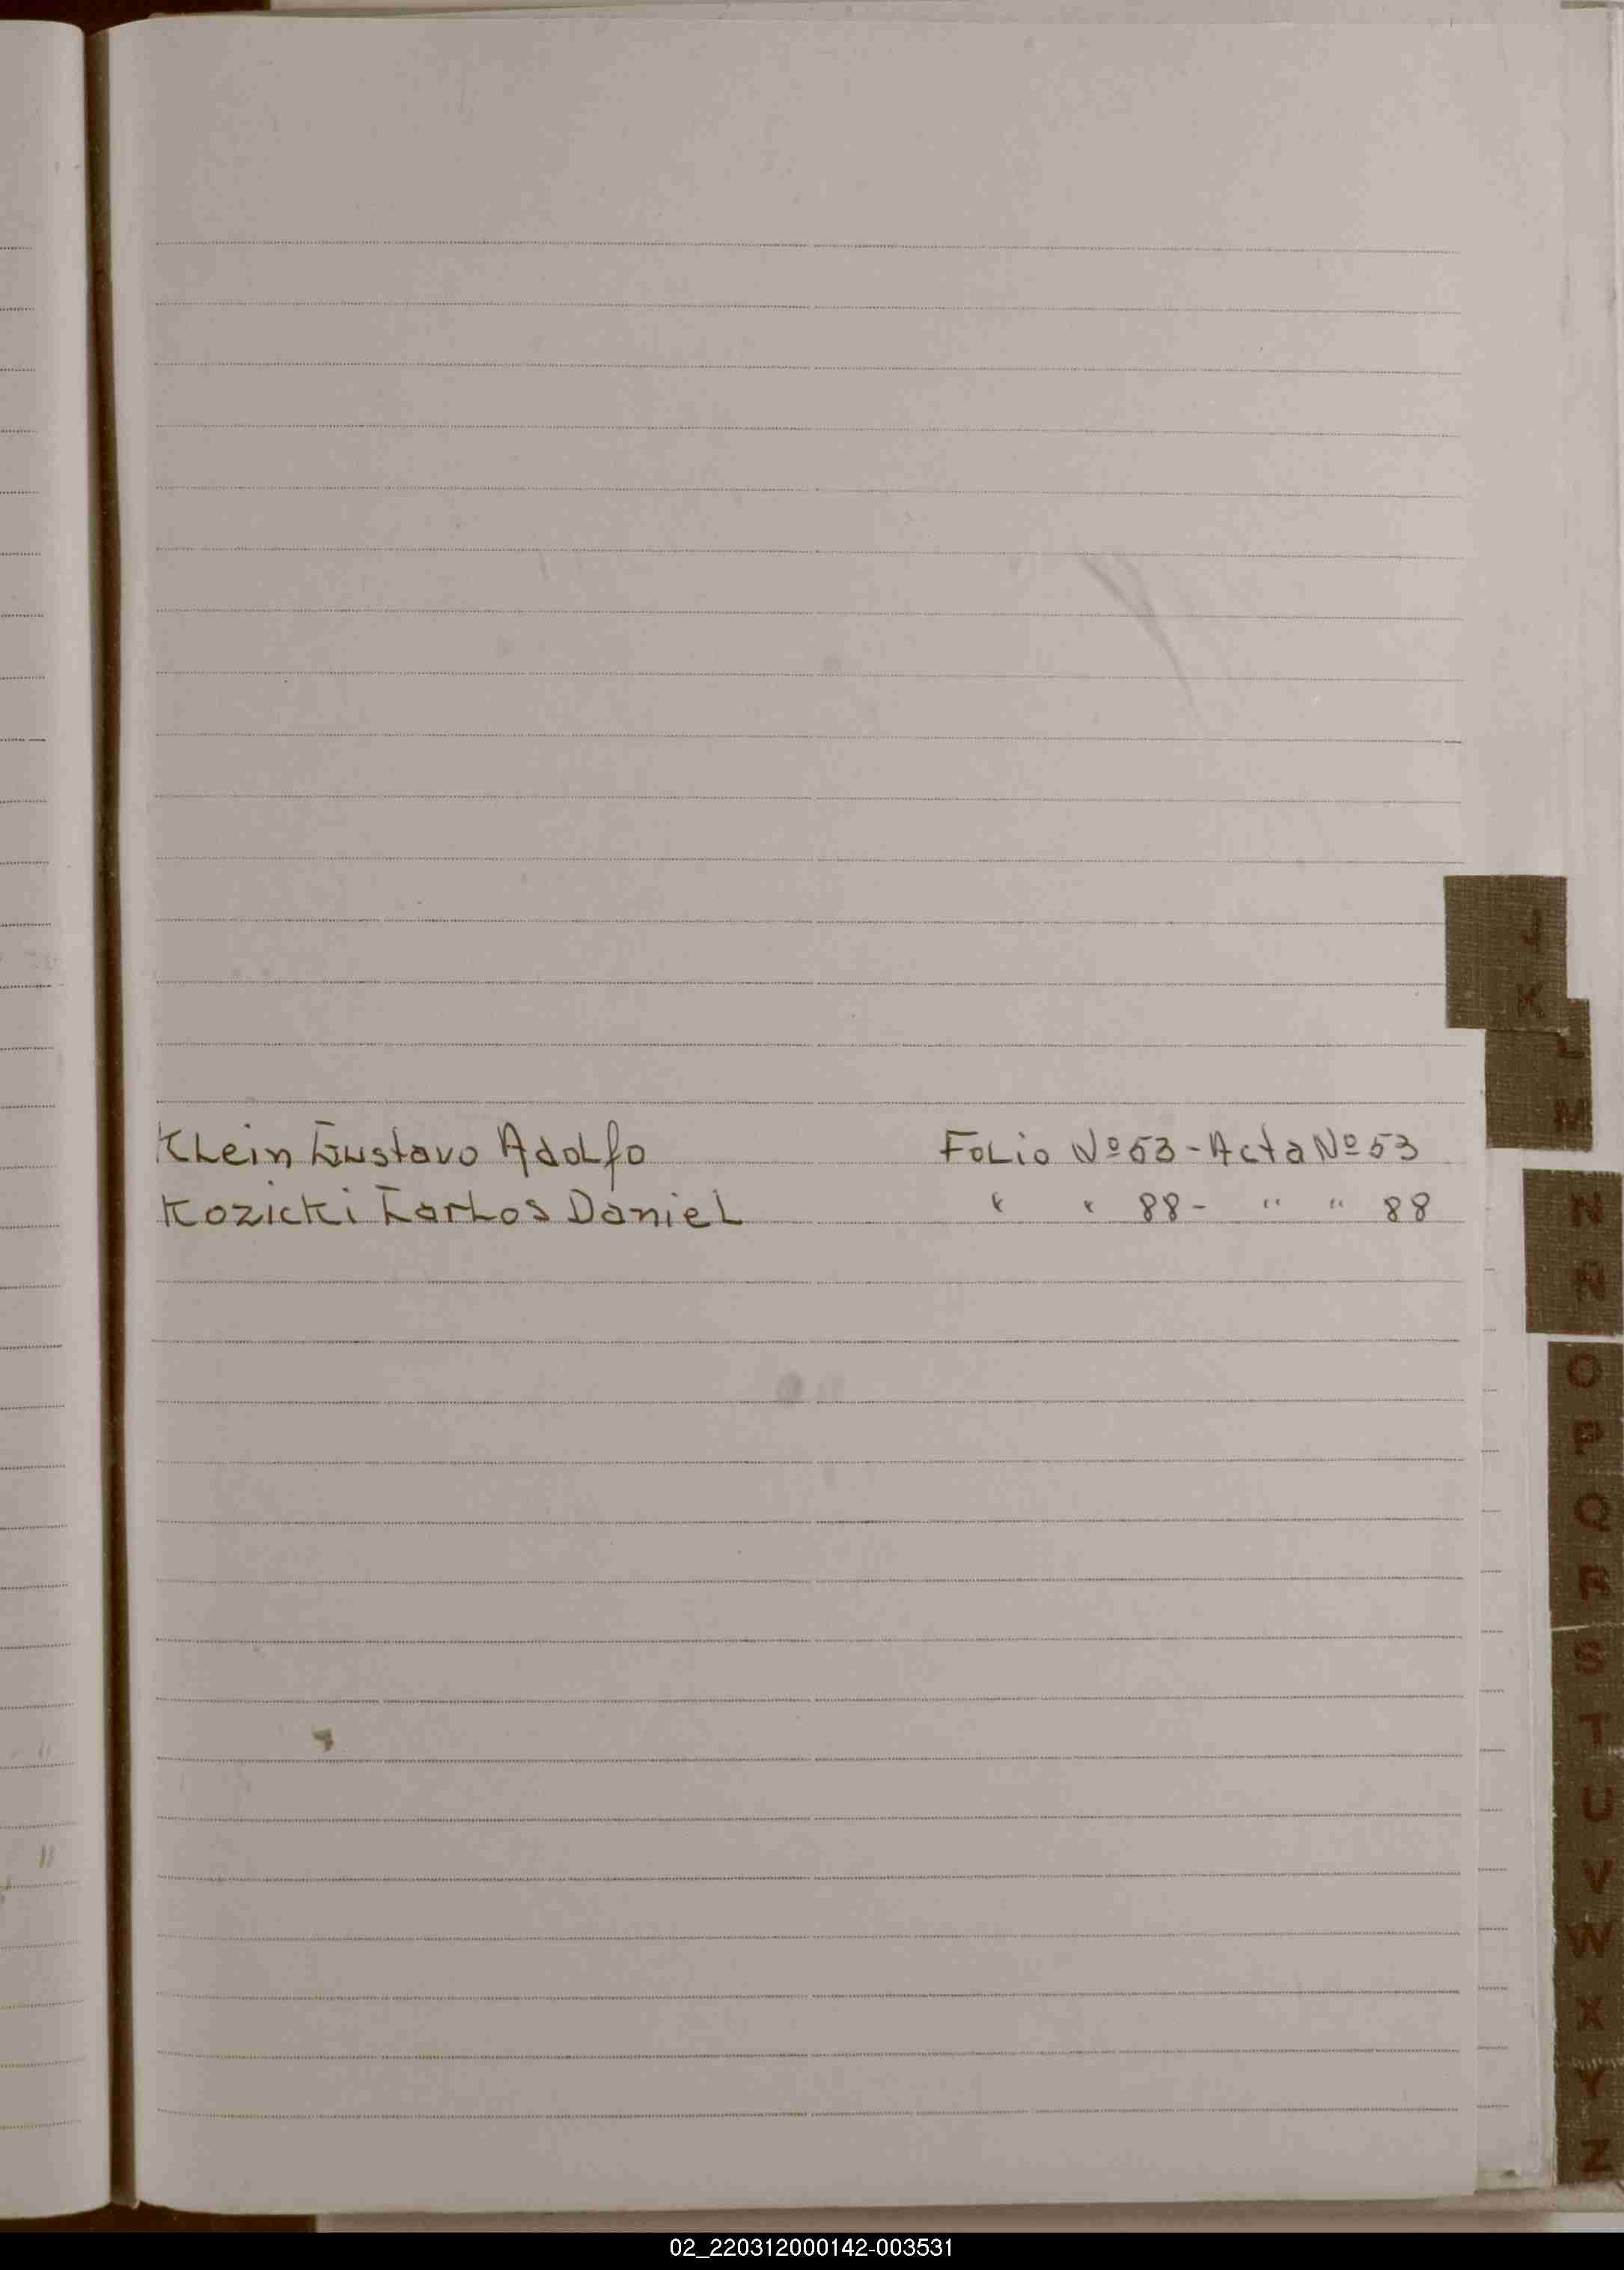 J
K
L
M
Klein Gustavo Adolfo Folio Nº 53 - Acta Nº 53
Kozicki Karlos Daniel " " 88 - " " 88
N
Ñ
O
P
Q
R
S
T
U
V
W
X
Y
Z
02_220312000142-003531